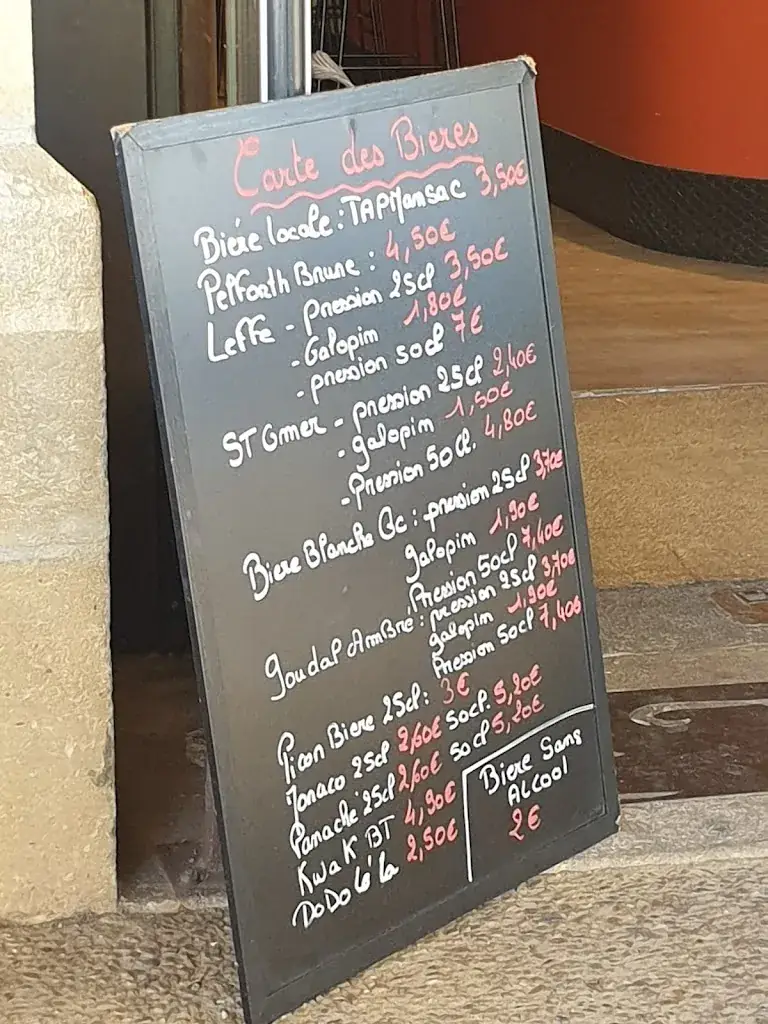 Carte des Bieres
Bière locale : TAPMansac 3,50€
Pelforth Brune : 4,50€
Leffe - pression 25cl 3,50€
- Galopim 1,80€
- pression 50cl 7€
ST Omer - pression 25cl 2,40€
- galopim 1,50€
- Pression 50cl. 4,80€
Biere Blanche Gc : pression 25cl 3,70€
galopim 1,90€
Pression 50cl 7,40€
Goudal Ambré : pression 25cl 3,70€
galopim 1,90€
Pression 50cl 7,40€
Picon Biere 25cl : 3€
Monaco 25cl 2,60€ 50cl. 5,20€
Panaché 25cl 2,60€ 50cl 5,20€
Kwak BT 4,90€
DoDo lé la 2,50€
Biere Sans
Alcool
2€